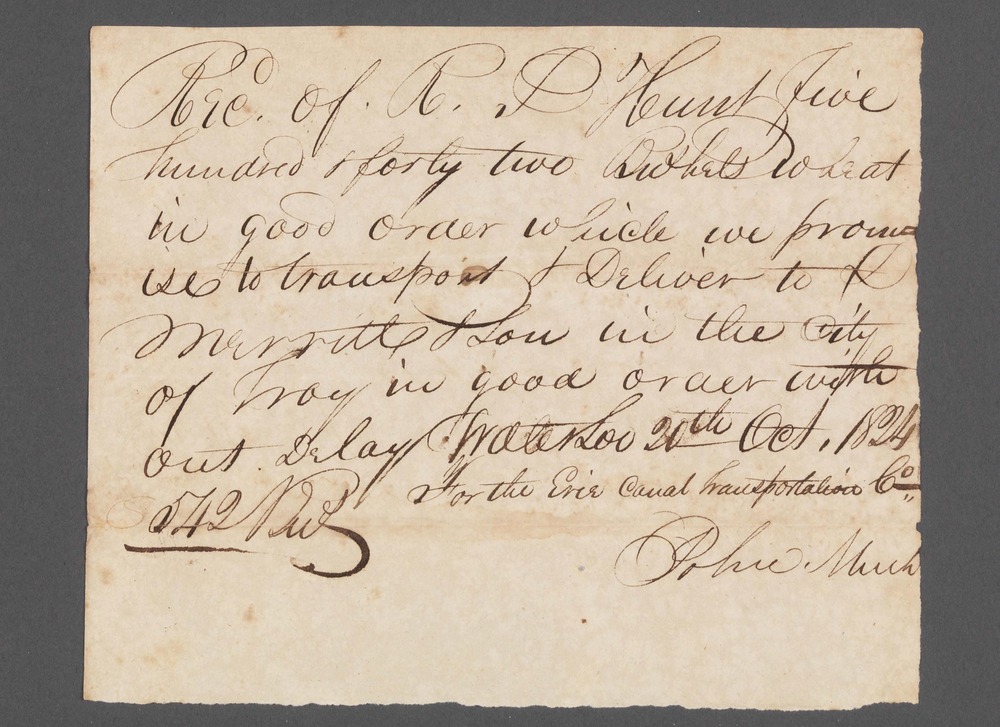 Recd. of. R. P Hunt five
hundred & forty two Bushels Wheat
in good order which we prom=
ise to transport & Deliver to
Merritt & Son in the City
of Troy in good order with
out Delay Waterloo 20th Oct, 1824
For the Erie Canal Transportation Co,,
542 Bus
John